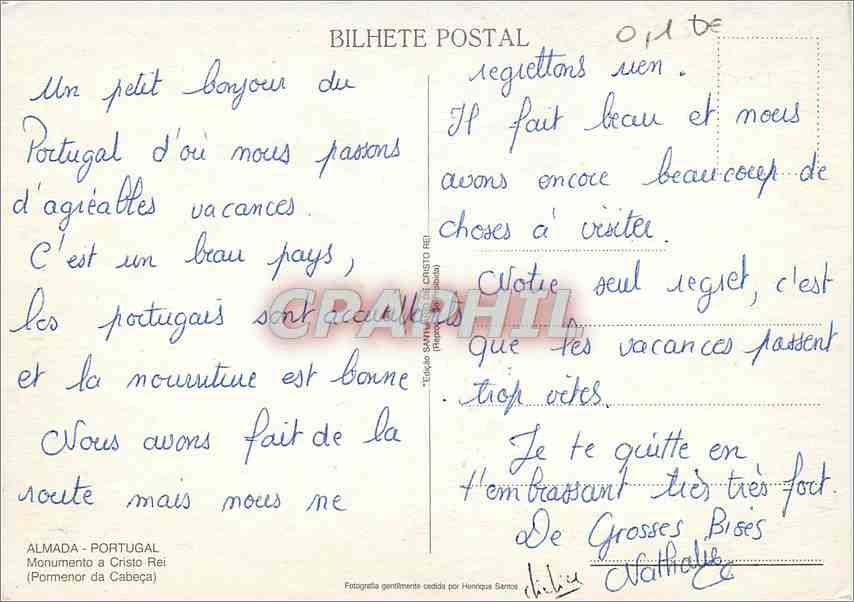 BILHETE POSTAL
0,1 DE
Un petit bonjour du
Portugal d'où nous passons
d'agréables vacances.
C'est un beau pays,
les portugais sont accueillants
et la nourriture est bonne
Nous avons fait de la
route mais nous ne
regrettons rien.
Il fait beau et nous
avons encore beaucoup de
choses à visiter.
Notre seul regret, c'est
que les vacances passent
trop vites.
Je te quitte en
t'embrassant très très fort.
De Grosses Bises
Nathalie
ALMADA - PORTUGAL
Monumento a Cristo Rei
(Pormenor da Cabeça)
Edição SANTUÁRIO DE CRISTO REI
(Reprodução proibida)
Fotografia gentilmente cedida por Henrique Santos
CPAPHIL